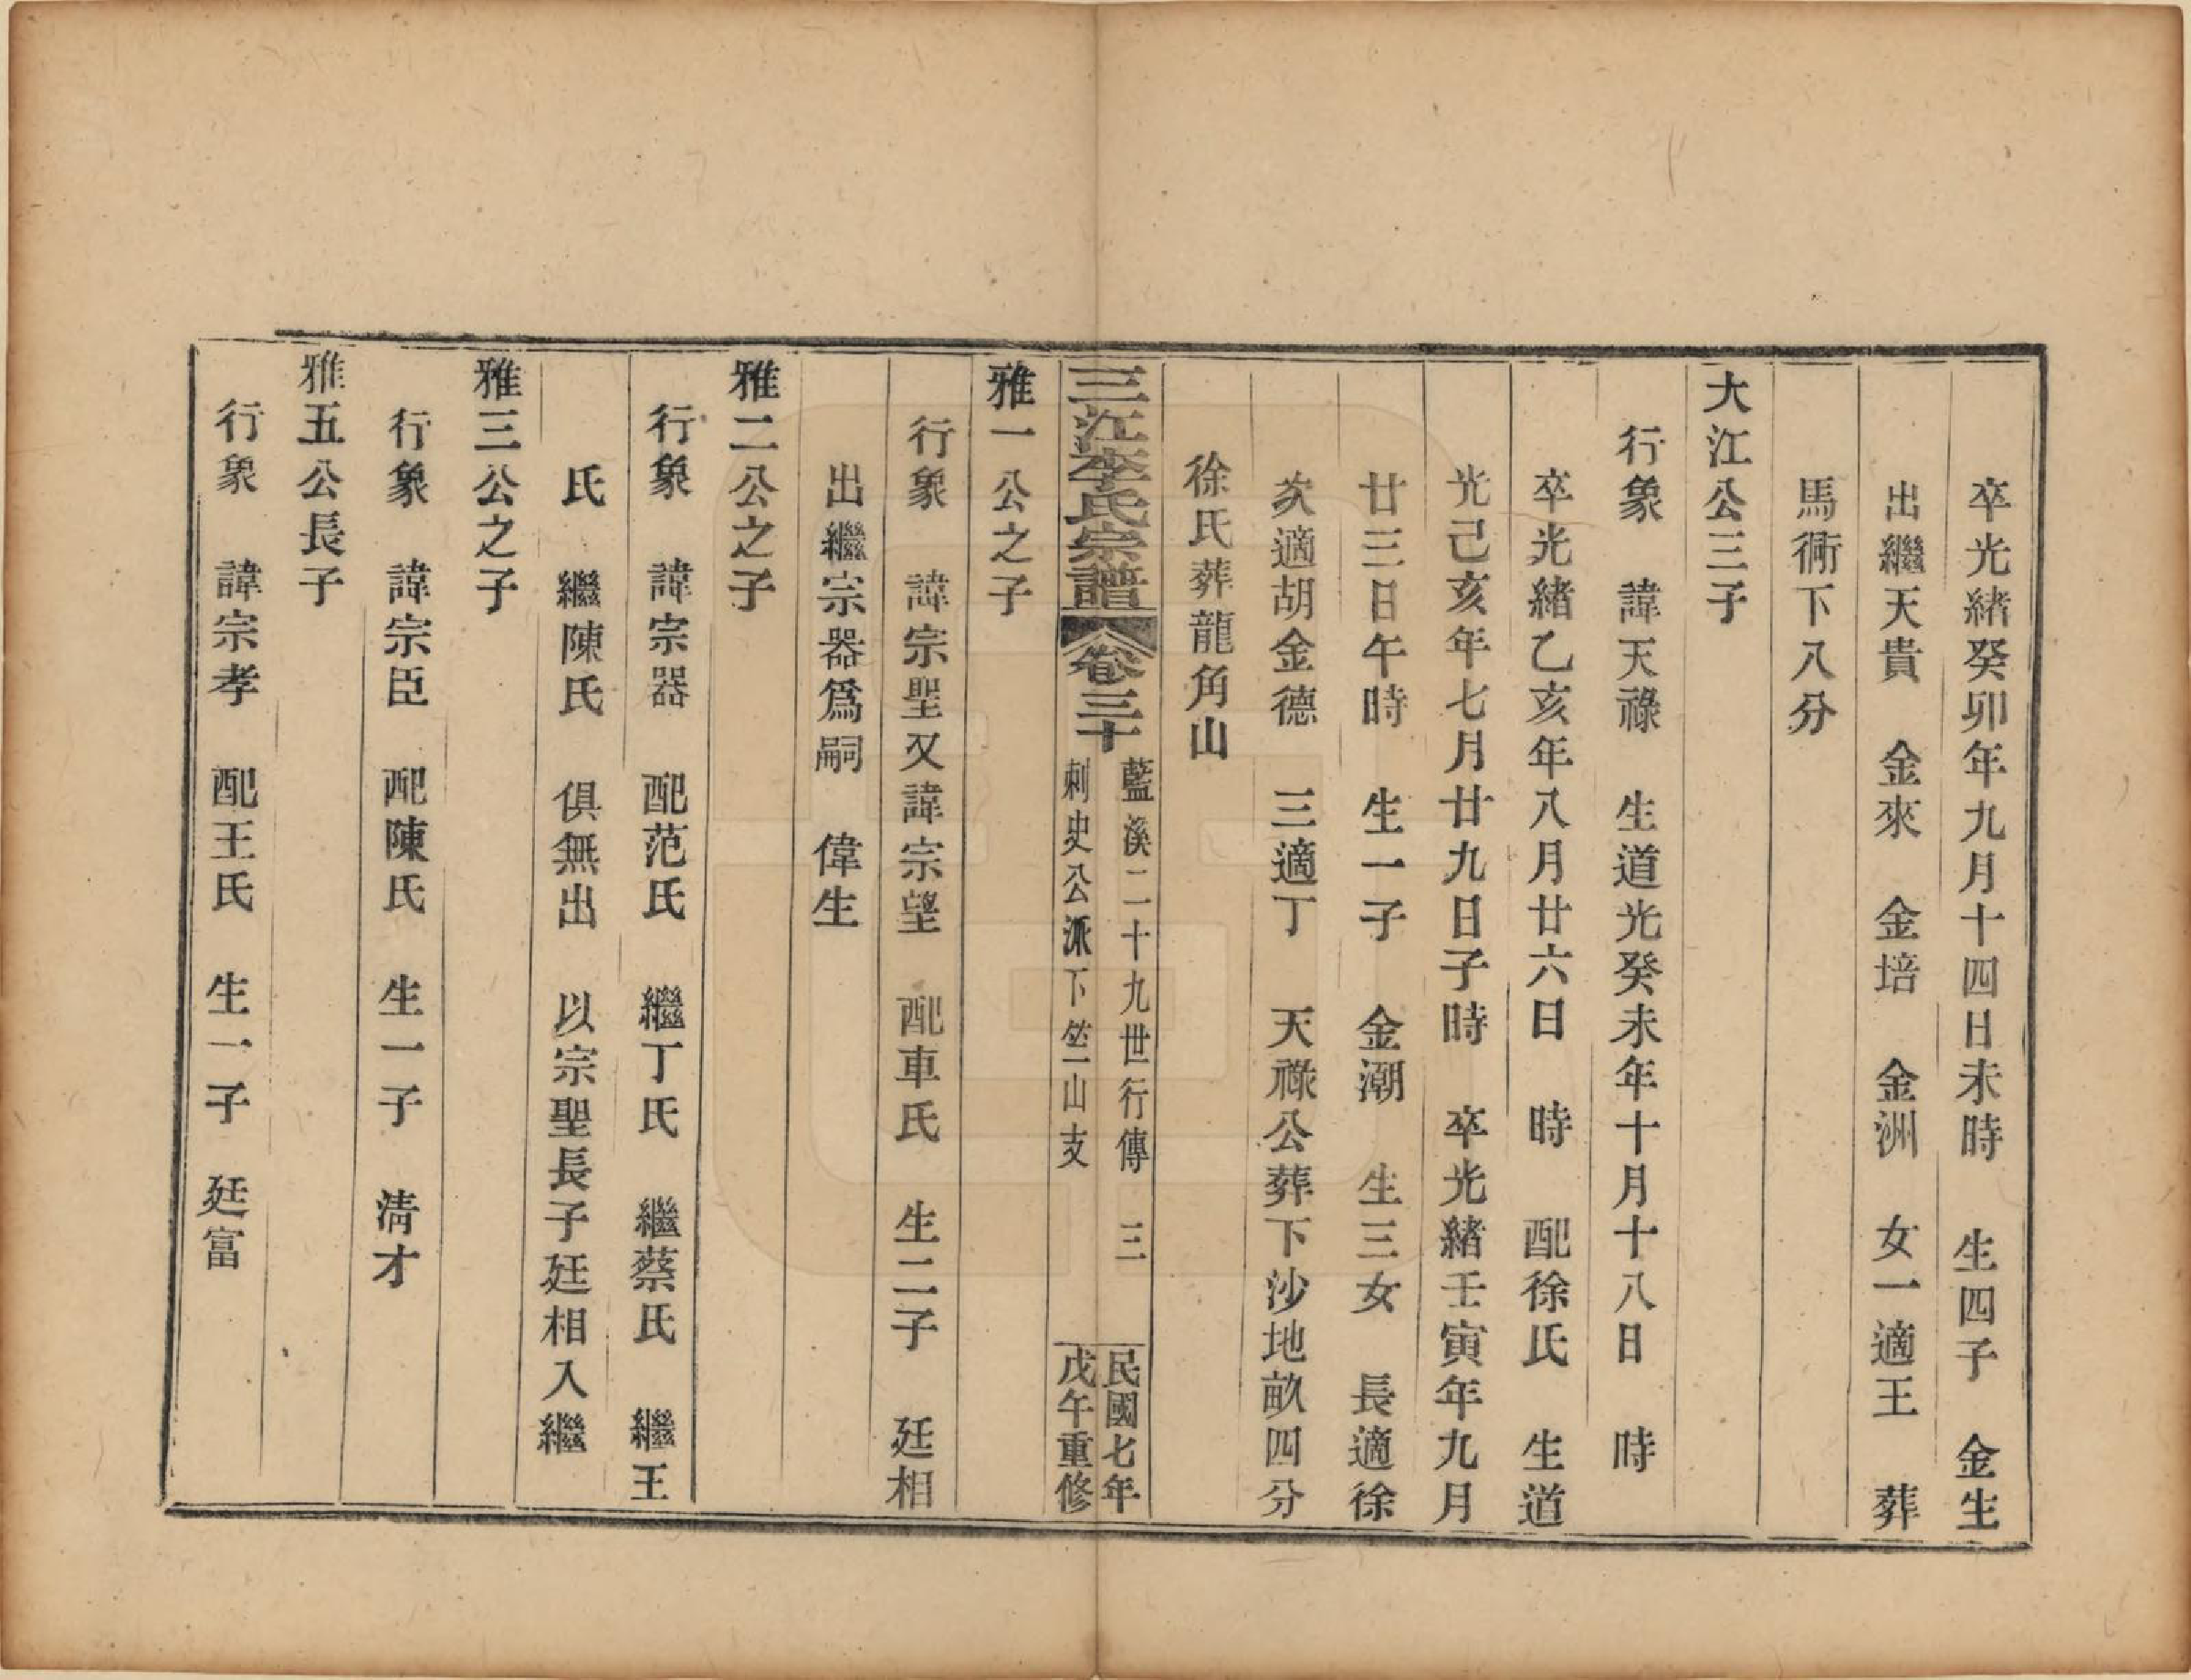 卒光緒癸卯年九月十四日未時　生四子　金生
出繼天貴　金來　金培　金洲　女一適王　葬
馬衕下八分
大江公三子
行象　諱天祿　生道光癸未年十月十八日　時
卒光緒乙亥年八月廿六日　時　配徐氏　生道
光己亥年七月廿九日子時　卒光緒壬寅年九月
廿三日午時　生一子　金潮　生三女　長適徐
次適胡金德　三適丁　天祿公葬下沙地畝四分
徐氏葬龍角山
三江李氏宗譜
卷三十
藍溪二十九世行傳　三
刺史公派下竺山支
民國七年
戊午重修
雅一公之子
行象　諱宗聖又諱宗望　配車氏　生二子　廷相
出繼宗器爲嗣　偉生
雅二公之子
行象　諱宗器　配范氏　繼丁氏　繼蔡氏　繼王
氏　繼陳氏　俱無出　以宗聖長子廷相入繼
雅三公之子
行象　諱宗臣　配陳氏　生一子　清才
雅五公長子
行象　諱宗孝　配王氏　生一子　廷富